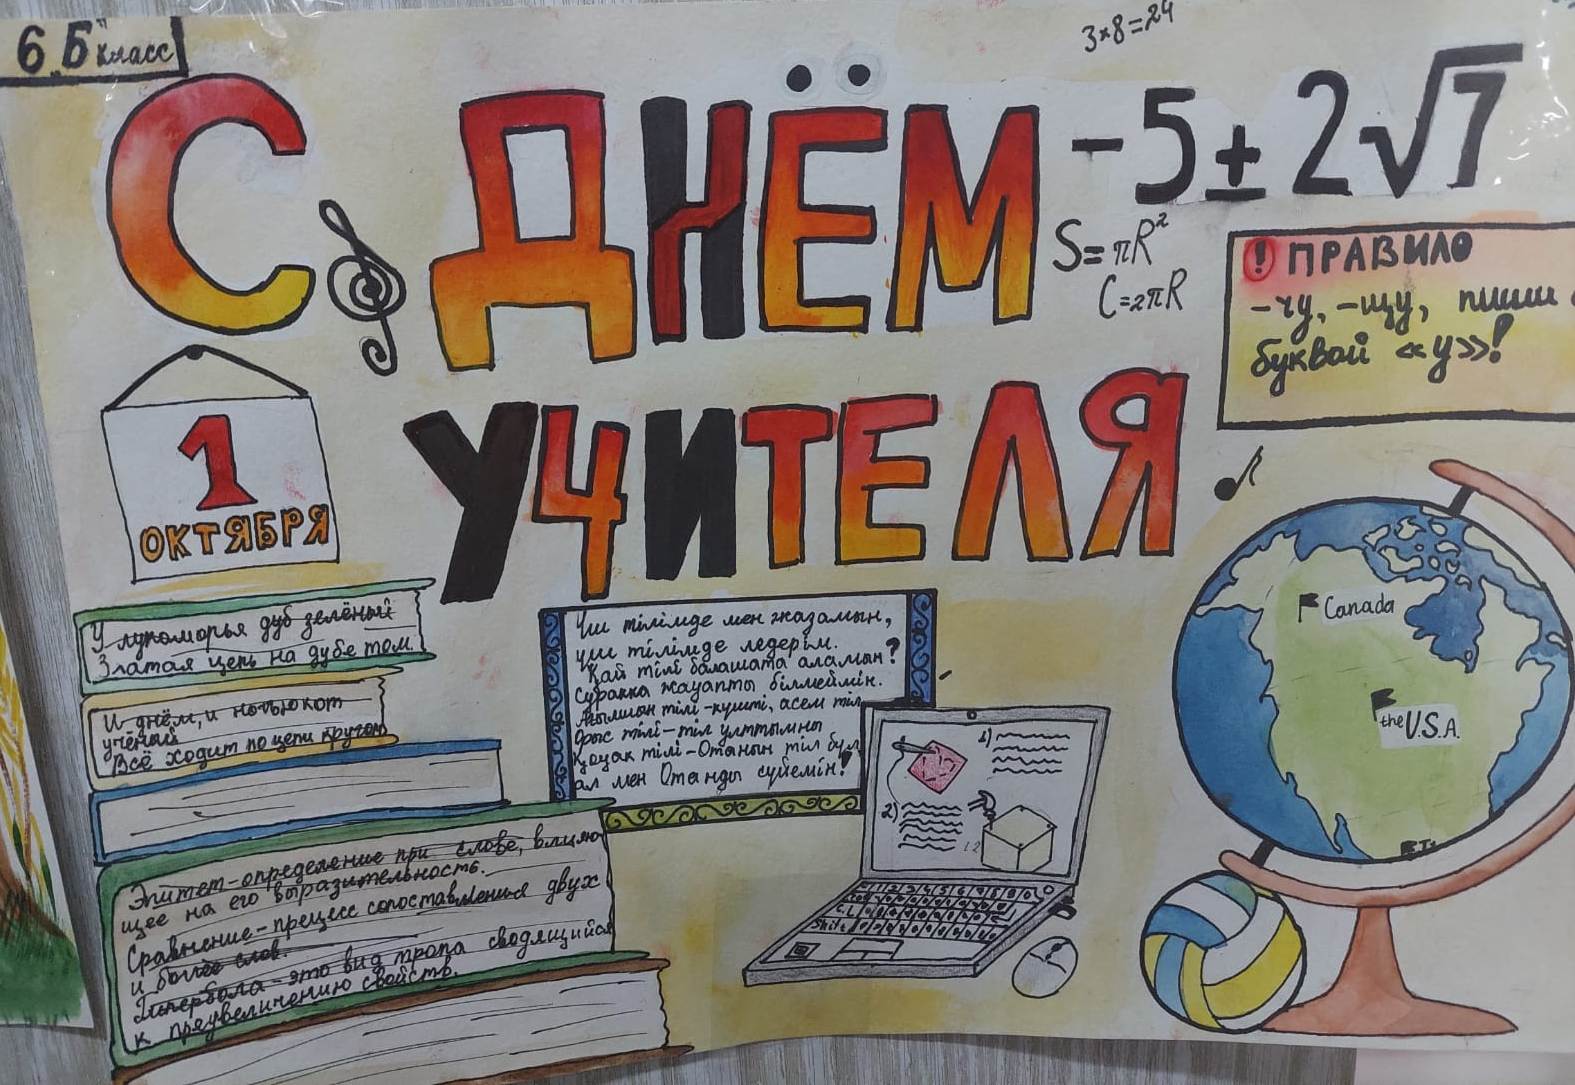 6 „Б" класс
3×8=24
С ДНЁМ
-5±2√7
S=πR²
C=2πR
! ПРАВИЛО
-чу, -щу, пиши с
буквой «у»!
1
ОКТЯБРЯ
УЧИТЕЛЯ
У лукоморья дуб зелёный
Златая цепь на дубе том.
И днём, и ночью кот
учёный
Всё ходит по цепи кругом
Эпитет-определение при слове, влияю
щее на его выразительность.
Сравнение-процесс сопоставления двух
и более слов.
Гипербола-это вид тропа сводящийся
к преувеличению свойств.
Үш тілімде мен жазамын,
үш тілімде ледерім.
Қай тілі балашата аламын?
Сұраққа жауапты білмеймін.
Ағылшын тілі-күшті, әсем тіл
Орыс тілі-тіл ұлттымны
Қазақ тілі-Отанын тіл бұл
ал мен Отанды сүйемін!
1)
2)
Shift
Canada
the U.S.A.